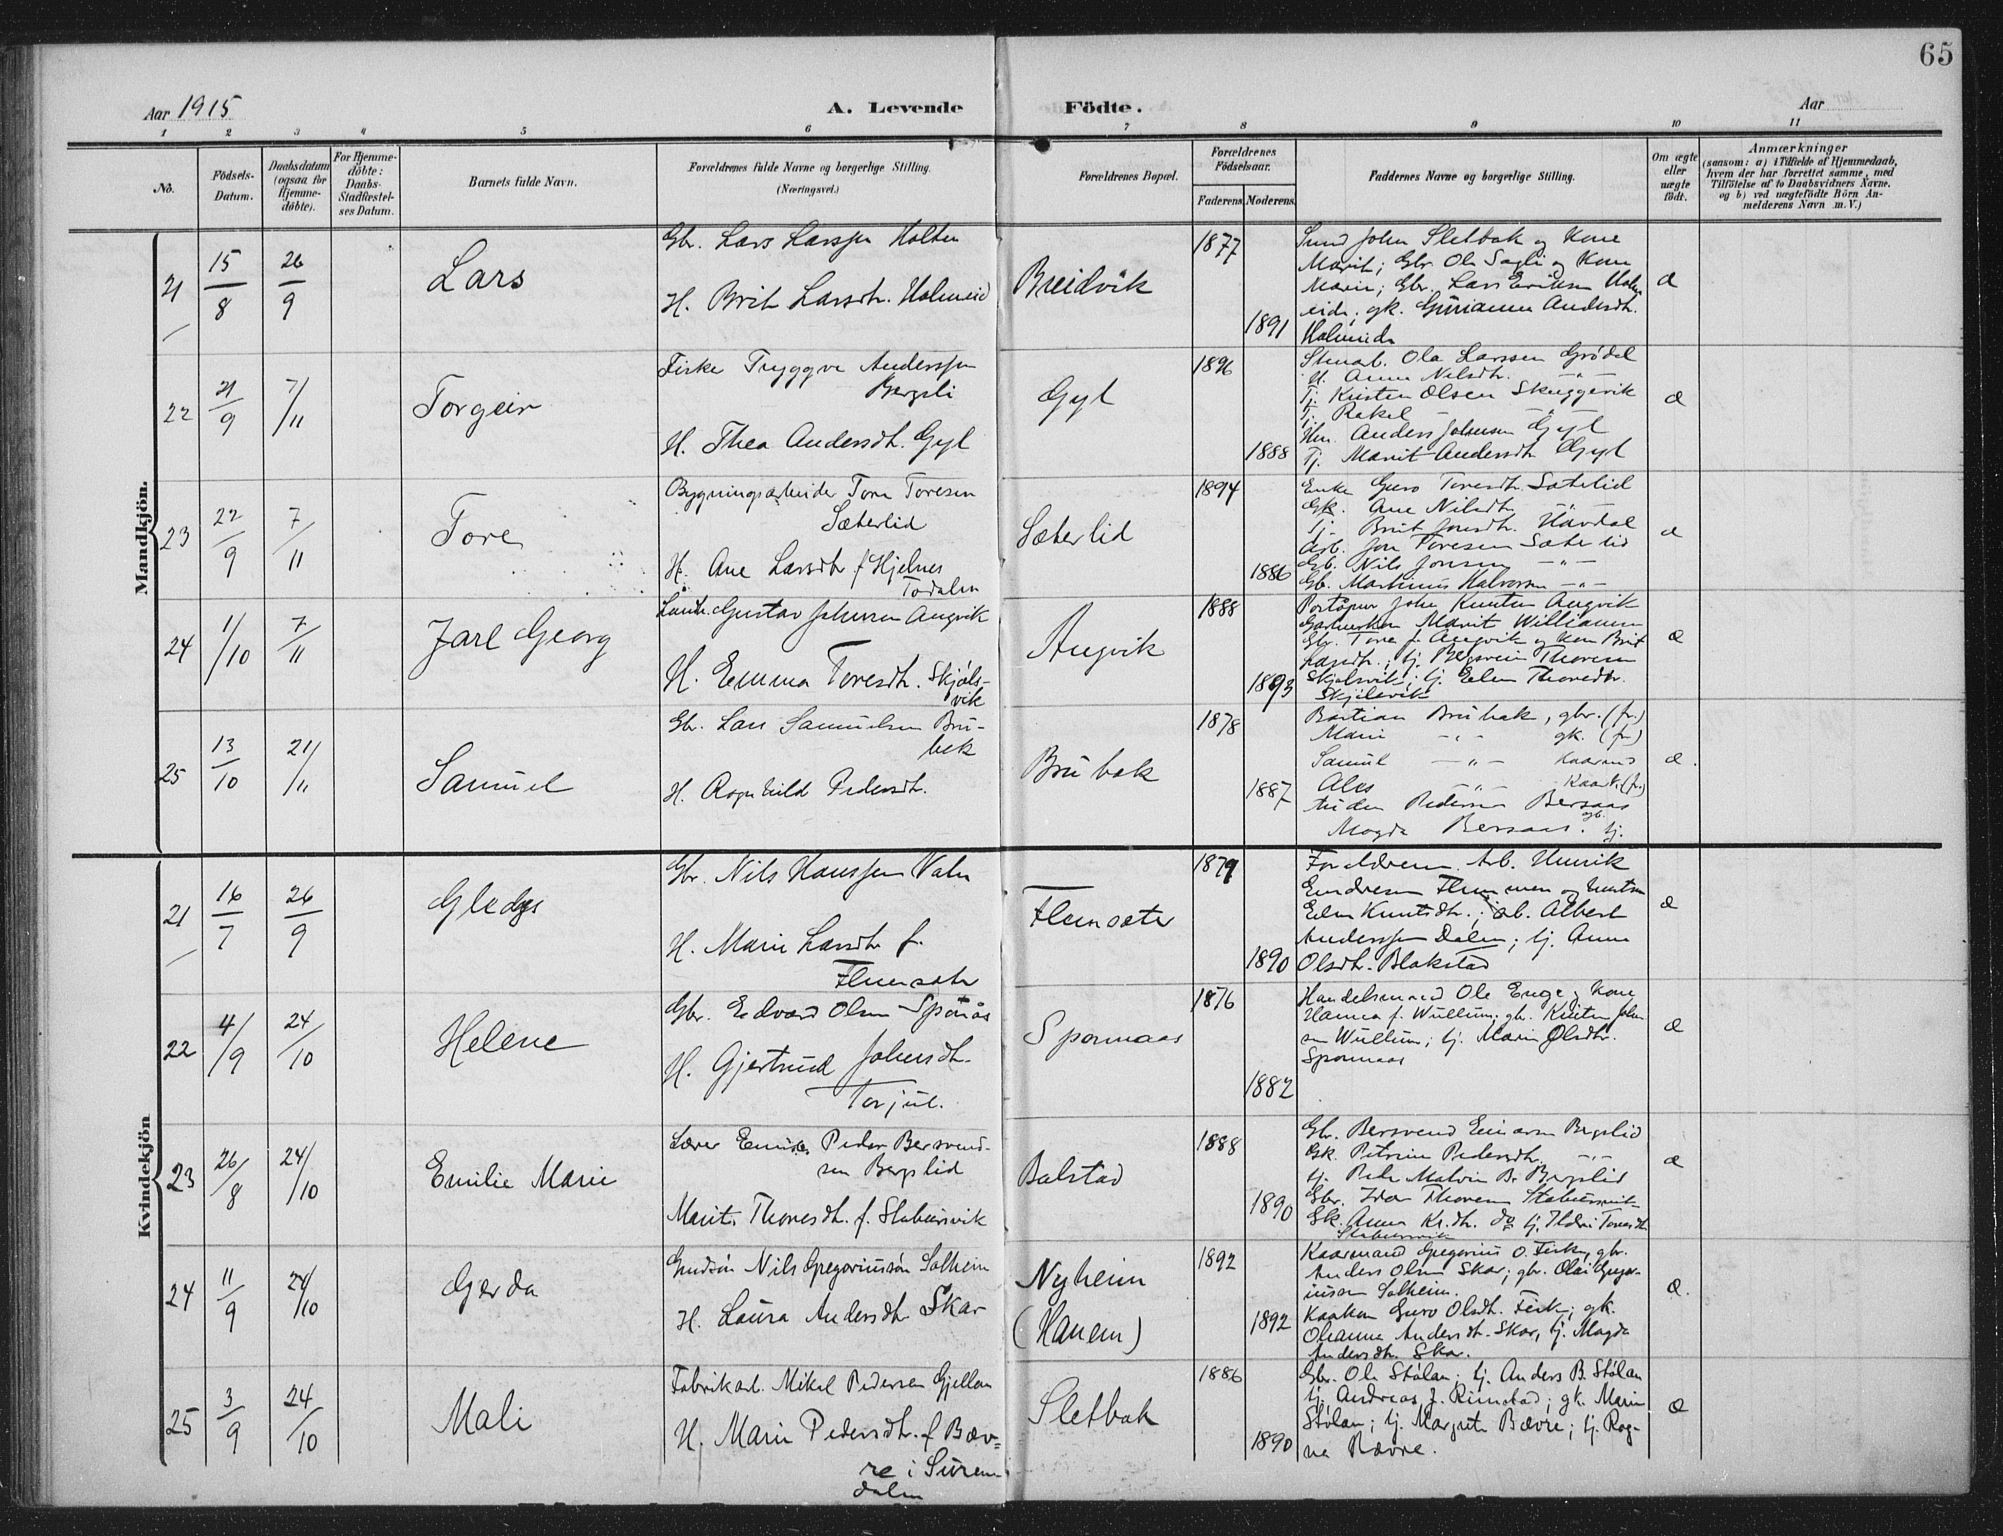 65
Aar 1915
A. Levende
Födte.
Aar
1 2 3 4 5 6 7 8 9 10 11
No.
Födsels-
Datum.
Daabsdatum
(ogsaa for
Hjemme-
döbte).
For Hjemme-
döbte:
Daabs-
Stadfæstel-
ses Datum.
Barnets fulde Navn.
Forældrenes fulde Navne og borgerlige Stilling.
(Næringsvei.)
Forældrenes Bopæl.
Forældrenes
Födselsaar.
Faderens.
Moderens.
Faddernes Navne og borgerlige Stilling.
Om ægte
eller
uægte
födt.
Anmærkninger
(saasom: a) i Tilfælde af Hjemmedaab,
hvem der har forrettet samme, med
Tilföielse af to Daabsvidners Navne.
og b) ved uægtefödte Börn An-
melderens Navn m. V.)
Mandkjön.
21
15/8
26/9
Lars
Gbr. Lars Larssen Holten
H. Brit Larsdtr. Halmeid
Breidvik
1877
1891
John Sletbak og Kone
Marit; Gbr. Ole Sagli og Kone
Marie; Gbr. Lars Eriksen
gk. Andersdtr.
æ
22
21/9
7/11
Torgeir
Fisker Tryggve Anderssen
Bergsli
H. Thea Andersdtr. Gyl
Gyl
1896
1888
Ola Larssen Grødal
H. Anne Nilsdtr. -"-
Tj. Kristen Olsen Skuggevik
Tj. Rakel -"-
Anders Johansen Gyl
Tj. Marit Andersdtr. Gyl
æ
23
22/9
7/11
Tore
Bygningsarbeider Tore Toresen
Sæterlid
H. Ane Larsdtr. f. Hjelnes
Todalen
Sæterlid
1894
1886
Enke Guro Toresdtr. Sæterlid
Gk. Ane Nilsdtr. -"-
Tj. Brit Jonsdtr. Havdal
Arb. Jon Toresen Sæterlid
Gb. Nils Jonsen -"-
Gb. Martinus Halvorsen -"-
æ
24
1/10
7/11
Jarl Georg
Gustav Johnsen Angvik
H. Emma Toresdtr. Skjøls-
vik
Angvik
1888
1893
John Knutsen Angvik
Marit Williamsen
Gbr. Tore J. Angvik og Kone Brit
Larsdtr.; tj. Thoresen
Skjølsvik; tj. Elen Thoresdtr.
Skjølsvik
æ
25
13/10
21/11
Samuel
Gbr. Lars Samuelsen Bru-
bek
H. Ragnhild Pedersdtr.
Brubak
1878
1887
Bastian Brubak, gbr. (fr.)
Marie -"- gk. (fr)
Samuel -"- Kaarmand
-"- (fr.)
Pedersen Bersaas
gb.
Magda Bersaas. tj.
æ.
Kvindekjön
21
16/7
26/9
Gledys
Gbr. Nils Hanssen Vatn
H. Marie Larsdtr. f.
Flemsæter
Flemsæter
1879
1890
Forældrene. Arb. Henrik
Endresen Flemmen og
Elen Knutsdtr.; arb. Albert
Anderssen Dalen; tj. Anna
Olsdtr. Blakstad
æ
22
4/9
24/10
Helene
Gbr. Edvard Olsen Sponås
H. Gjertrud Johnsdtr.
Torjul.
Sponnaas
1876
1882
Handelsmand Ole Enge og Kone
Hanna f. Wullum; gb. Kristen John
sen Wullum; tj. Marie Olsdtr.
Sponnaas
æ
23
26/8
24/10
Emilie Marie
Lærer Einar Peder Bersvend-
sen Bergslid
Marit Thoresdtr. f. Staburvik
Balstad
1888
1890
Gbr. Bersvend Einarsen Bergslid
Gk. Petrine Pedersdtr. -"-
tj. Peder Malvin B. Bergslid
Gbr. Thoresen
Gk. Anne Kr.dtr. do tj. Ildri Toresdtr.
æ
24
11/9
24/10
Gerda
Grudsön Nils Gregoriussön Solheim
H. Laura Andersdtr. Skar
Nyheim
(Hanem)
1892
1892
Kaarmand Gregorius O. Fisk, gbr.
Anders Olsen Skar; gbr. Olai Gregor-
iussen Solheim.
Kaakone Guro Olsdtr. Fisk; gk.
Olianna Andersdtr. Skar, tj. Magda
Andersdtr. Skar.
æ.
25
3/9
24/10
Mali
Fabrikarb. Mikal Pedersen Gjellan
H. Marie Pedersdtr. f. Bæv-
re i Suren-
dalen
Sletbak
1886
1890
Gbr. Ole Stölan; tj. Anders B. Stölan
tj. Andreas J. Rimstad; gk. Marie
Stölan; tj. Margrete Bævre; tj. Rag-
na Bævre.
æ